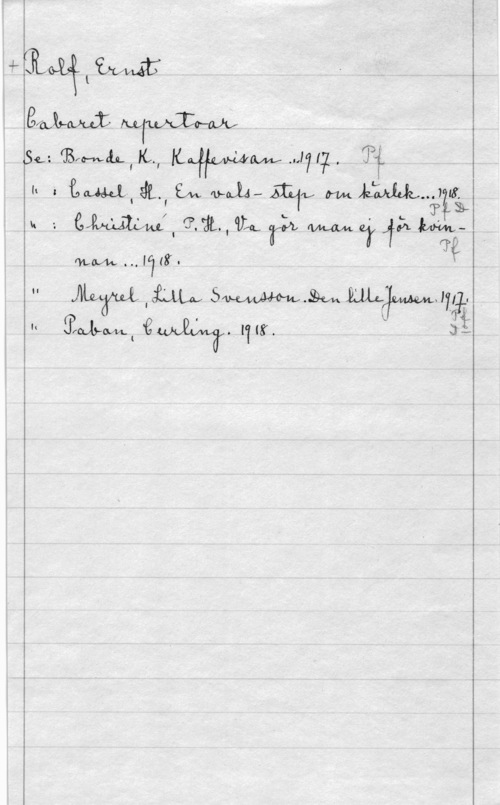 + Rolf, Ernst
Cabaret repertoar
Se: Bonde, K., Kaffevisan ..1917. Pf
" : Cassel, H., En vals-step om kärlek...1918.
Pf D
" : Christiné, P. H., Va gör man ej för kvin-
Pf
nan ...1918.
" Meyrel, Lilla Svensson. Den lille Jensen. 1917.
Pf
" Paban, Curling. 1918.